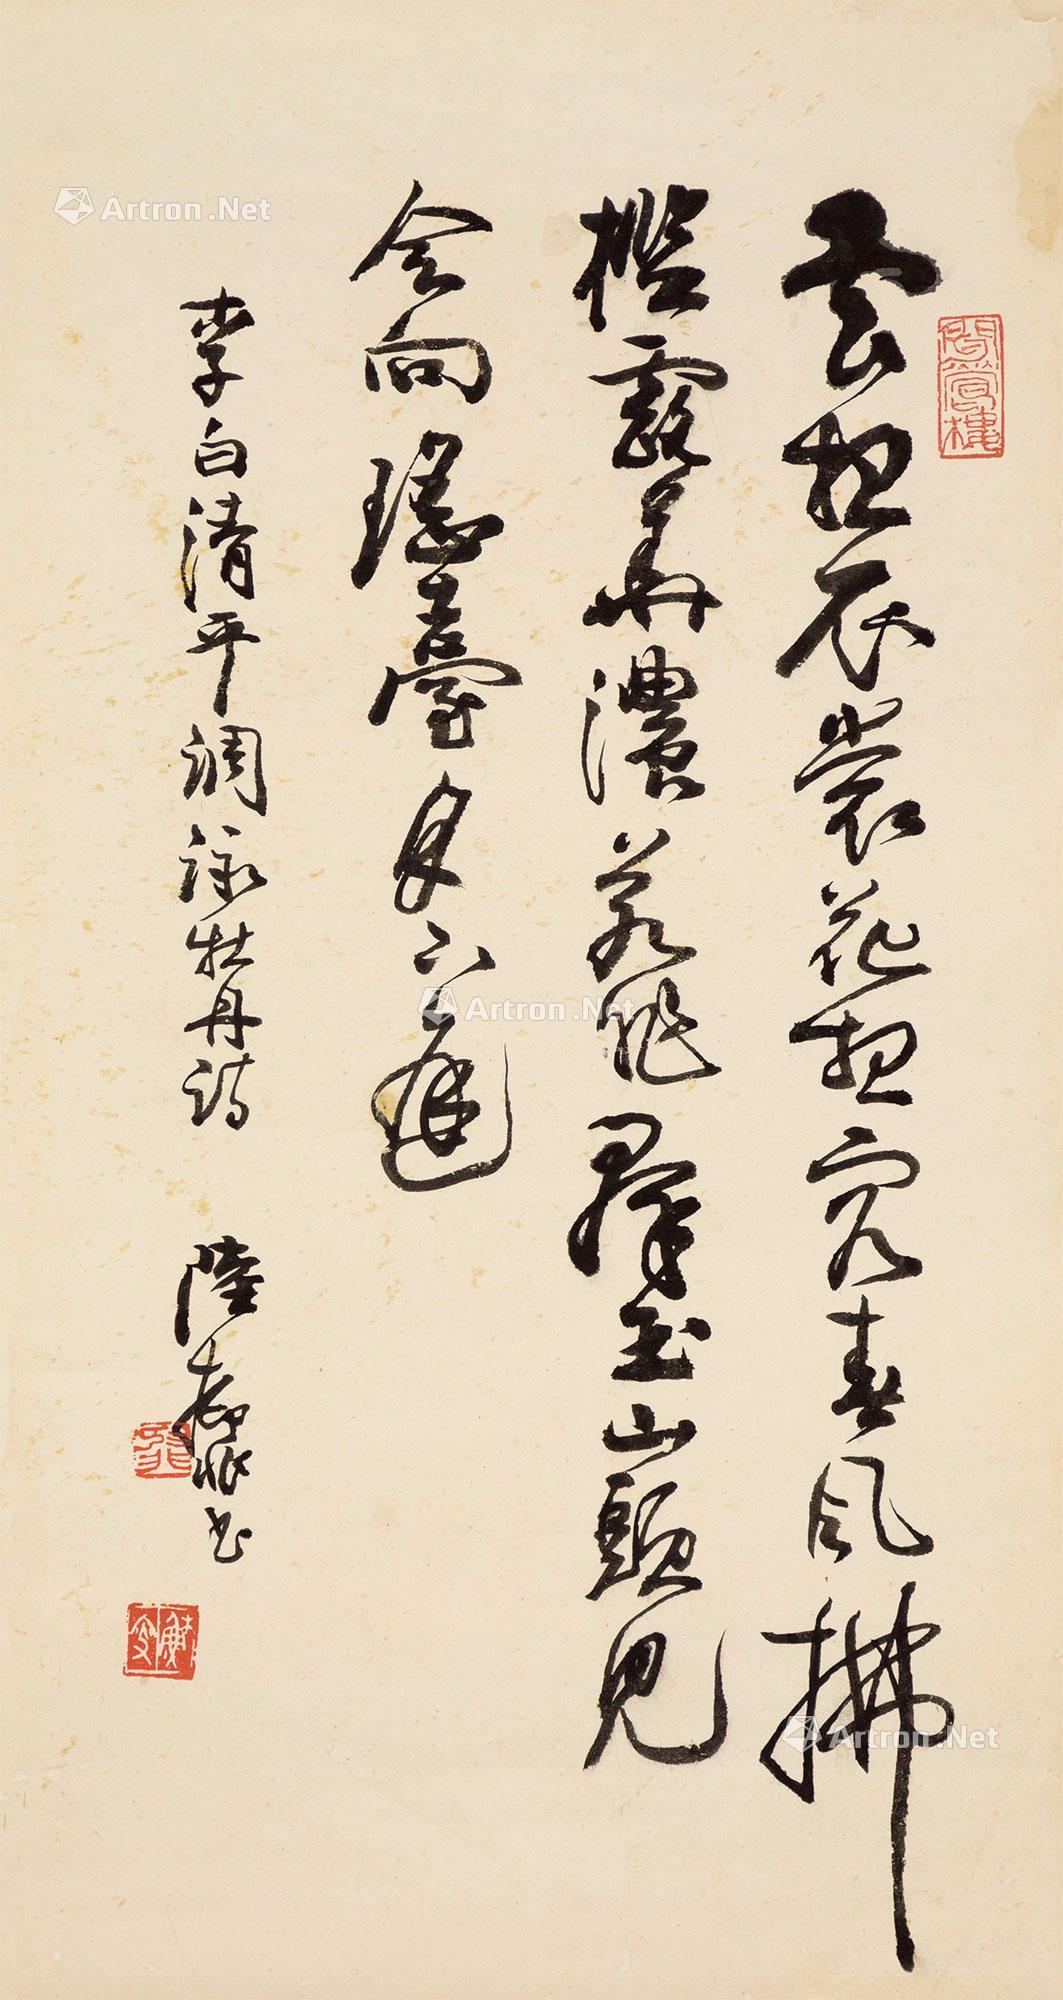 雲想衣裳花想容春風拂
檻露華濃若非羣玉山頭見
会向瑤臺月下逢
李白清平調詠牡丹詩 陸抑非書
Artron.Net
Artron.Net
Artron.Net